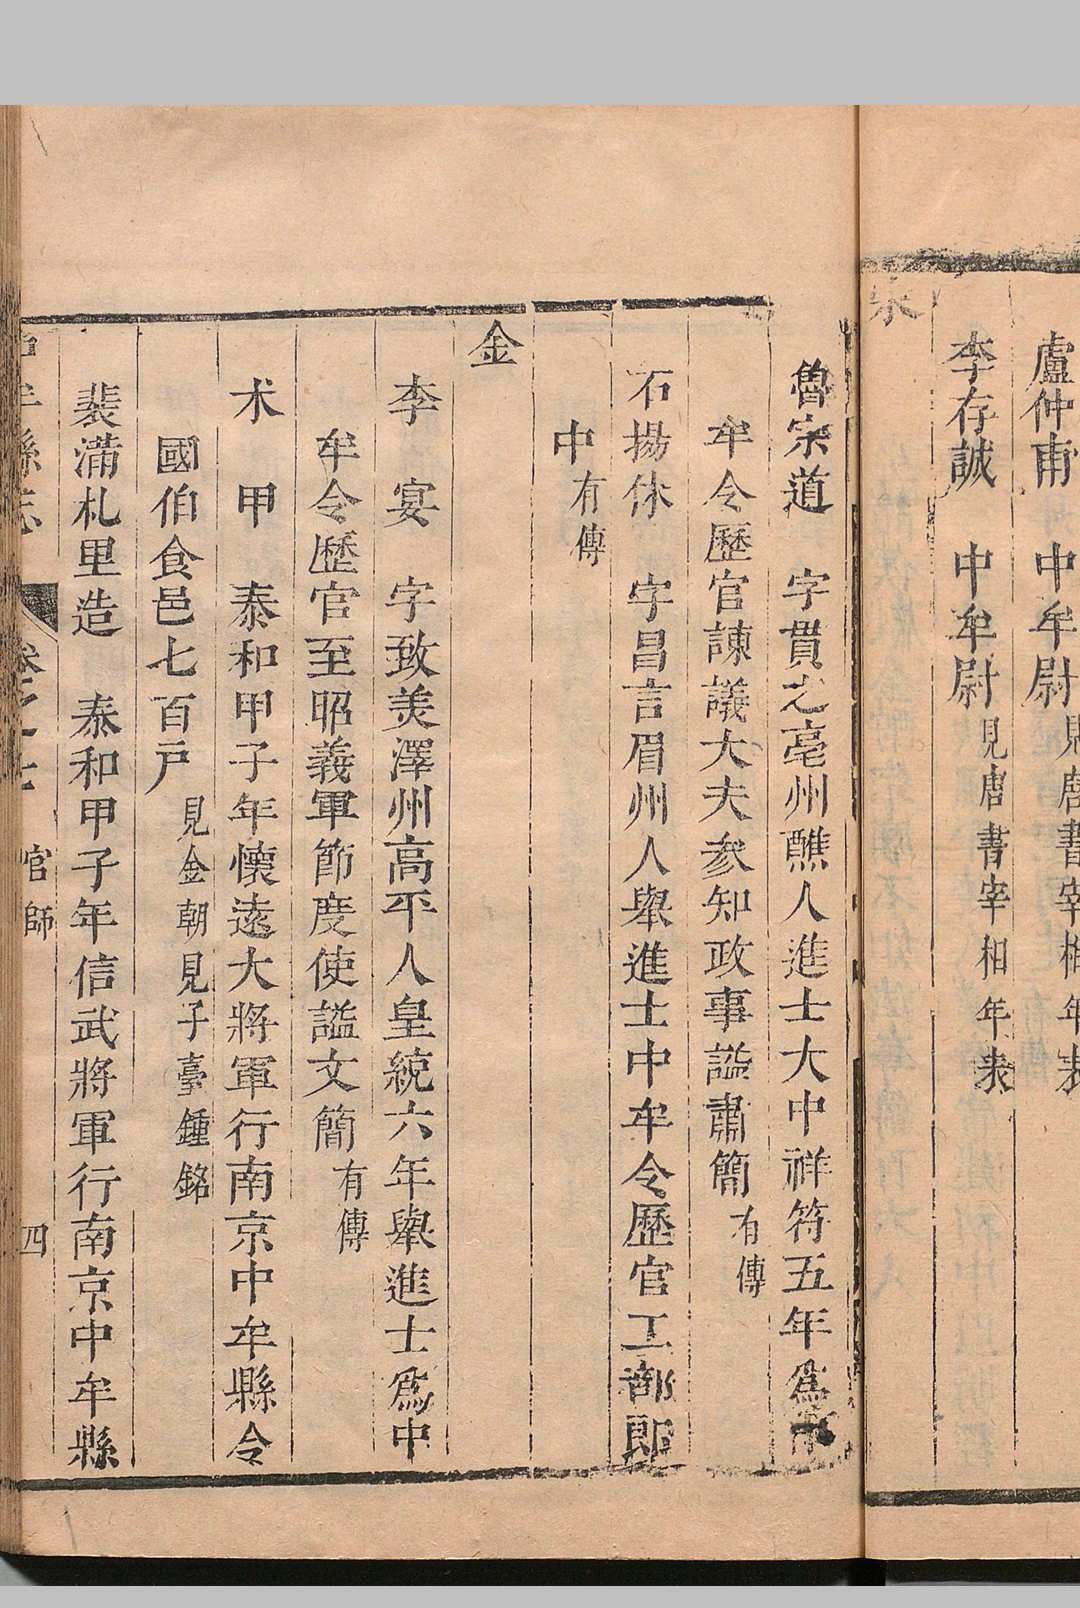 盧仲甫　中牟尉見唐書宰相年表
李存誠　中牟尉見唐書宰相年表
宋
魯宗道　字貫之亳州醮人進士大中祥符五年為中
牟令歷官諫議大夫參知政事諡肅簡有傳
石揚休　字昌言眉州人舉進士中牟令歷官工部郎
中有傳
金
李　宴　字致美澤州高平人皇統六年舉進士為中
牟令歷官至昭義軍節度使諡文簡有傳
术　甲　泰和甲子年懷遠大將軍行南京中牟縣令
國伯食邑七百戶見金朝見子臺鍾銘
裴滿札里造　泰和甲子年信武將軍行南京中牟縣
中牟縣志　卷之七　官師　四